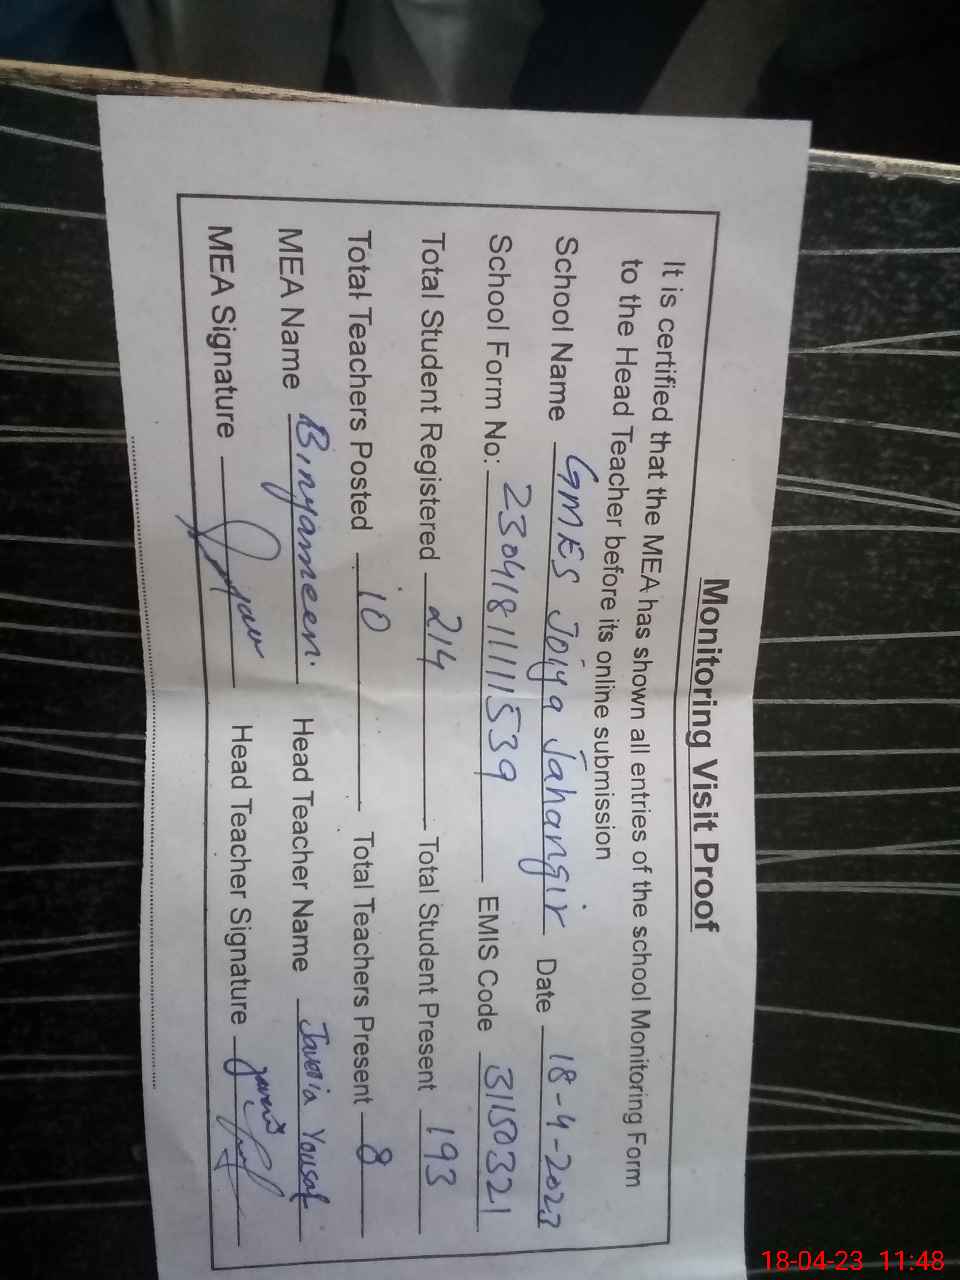 Monitoring Visit Proof
It is certified that the MEA has shown all entries of the school Monitoring Form
to the Head Teacher before its online submission
School Name GMES Joiya Jahangir Date 18-4-2023
School Form No: 230418111111539 EMIS Code 31150321
Total Student Registered 214 Total Student Present 193
Total Teachers Posted 10 Total Teachers Present 8
MEA Name Binyameen. Head Teacher Name Javeria Yousaf
MEA Signature Head Teacher Signature
18-04-23 11:48